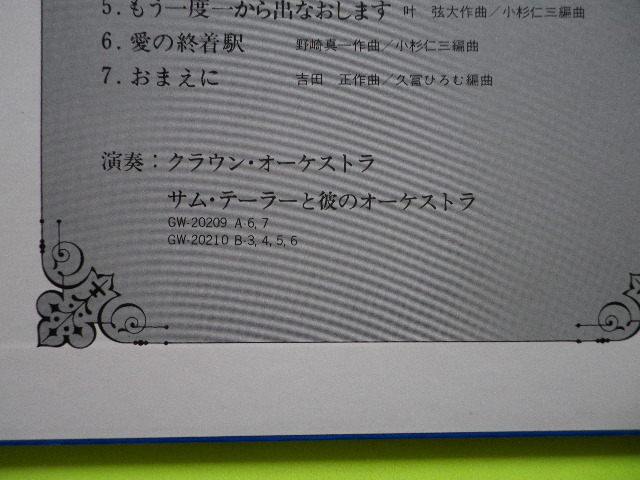 5. もう一度一から出なおします 叶 弦大作曲／小杉仁三編曲
6. 愛の終着駅 野崎真一作曲／小杉仁三編曲
7. おまえに 吉田 正作曲／久冨ひろむ編曲
演奏：クラウン・オーケストラ
サム・テーラーと彼のオーケストラ
GW-20209 A 6, 7
GW-20210 B-3, 4, 5, 6